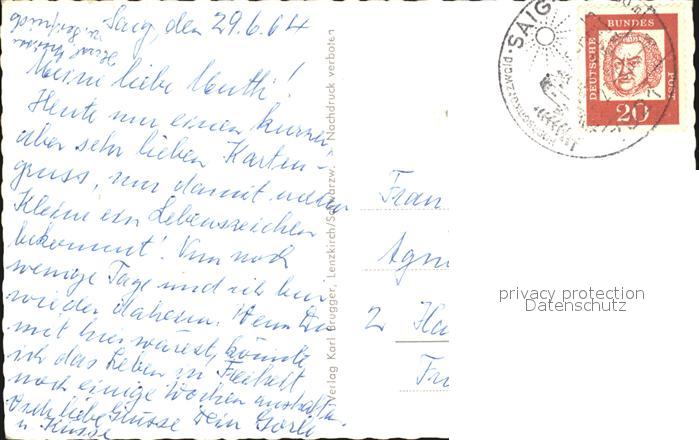 Saig, den 29.6.64
Meine liebe Mutti!
Heute nur einen kurzen
aber sehr lieben Karten-
gruss, nur damit meine
Kleine ein Lebenszeichen
bekommt! Nun noch
wenige Tage und ich bin
wieder daheim. Wenn Du
mit hier wärest, könnte
ich das Leben in Freiheit
noch einige Wochen aushalten.
Viele liebe Grüsse Dein
u. Küsse
Verlag Karl Brugger, Lenzkirch/Schwarzw. Nachdruck verboten
SAIG
Hochschwarzwald
DEUTSCHE
BUNDES
POST
20
Frau
Agn
2 Ha
privacy protection
Datenschutz